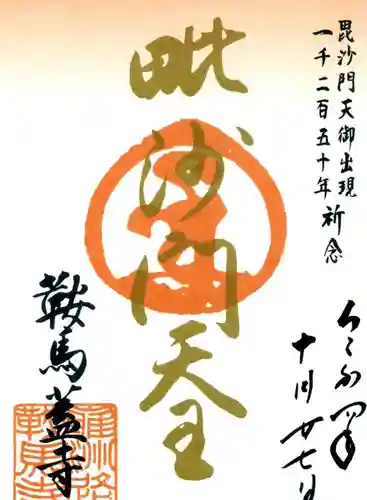 毘沙門天御出現
一千二百五十年祈念
令和四年
十月廿七日
毗沙門天王
鞍馬蓋寺